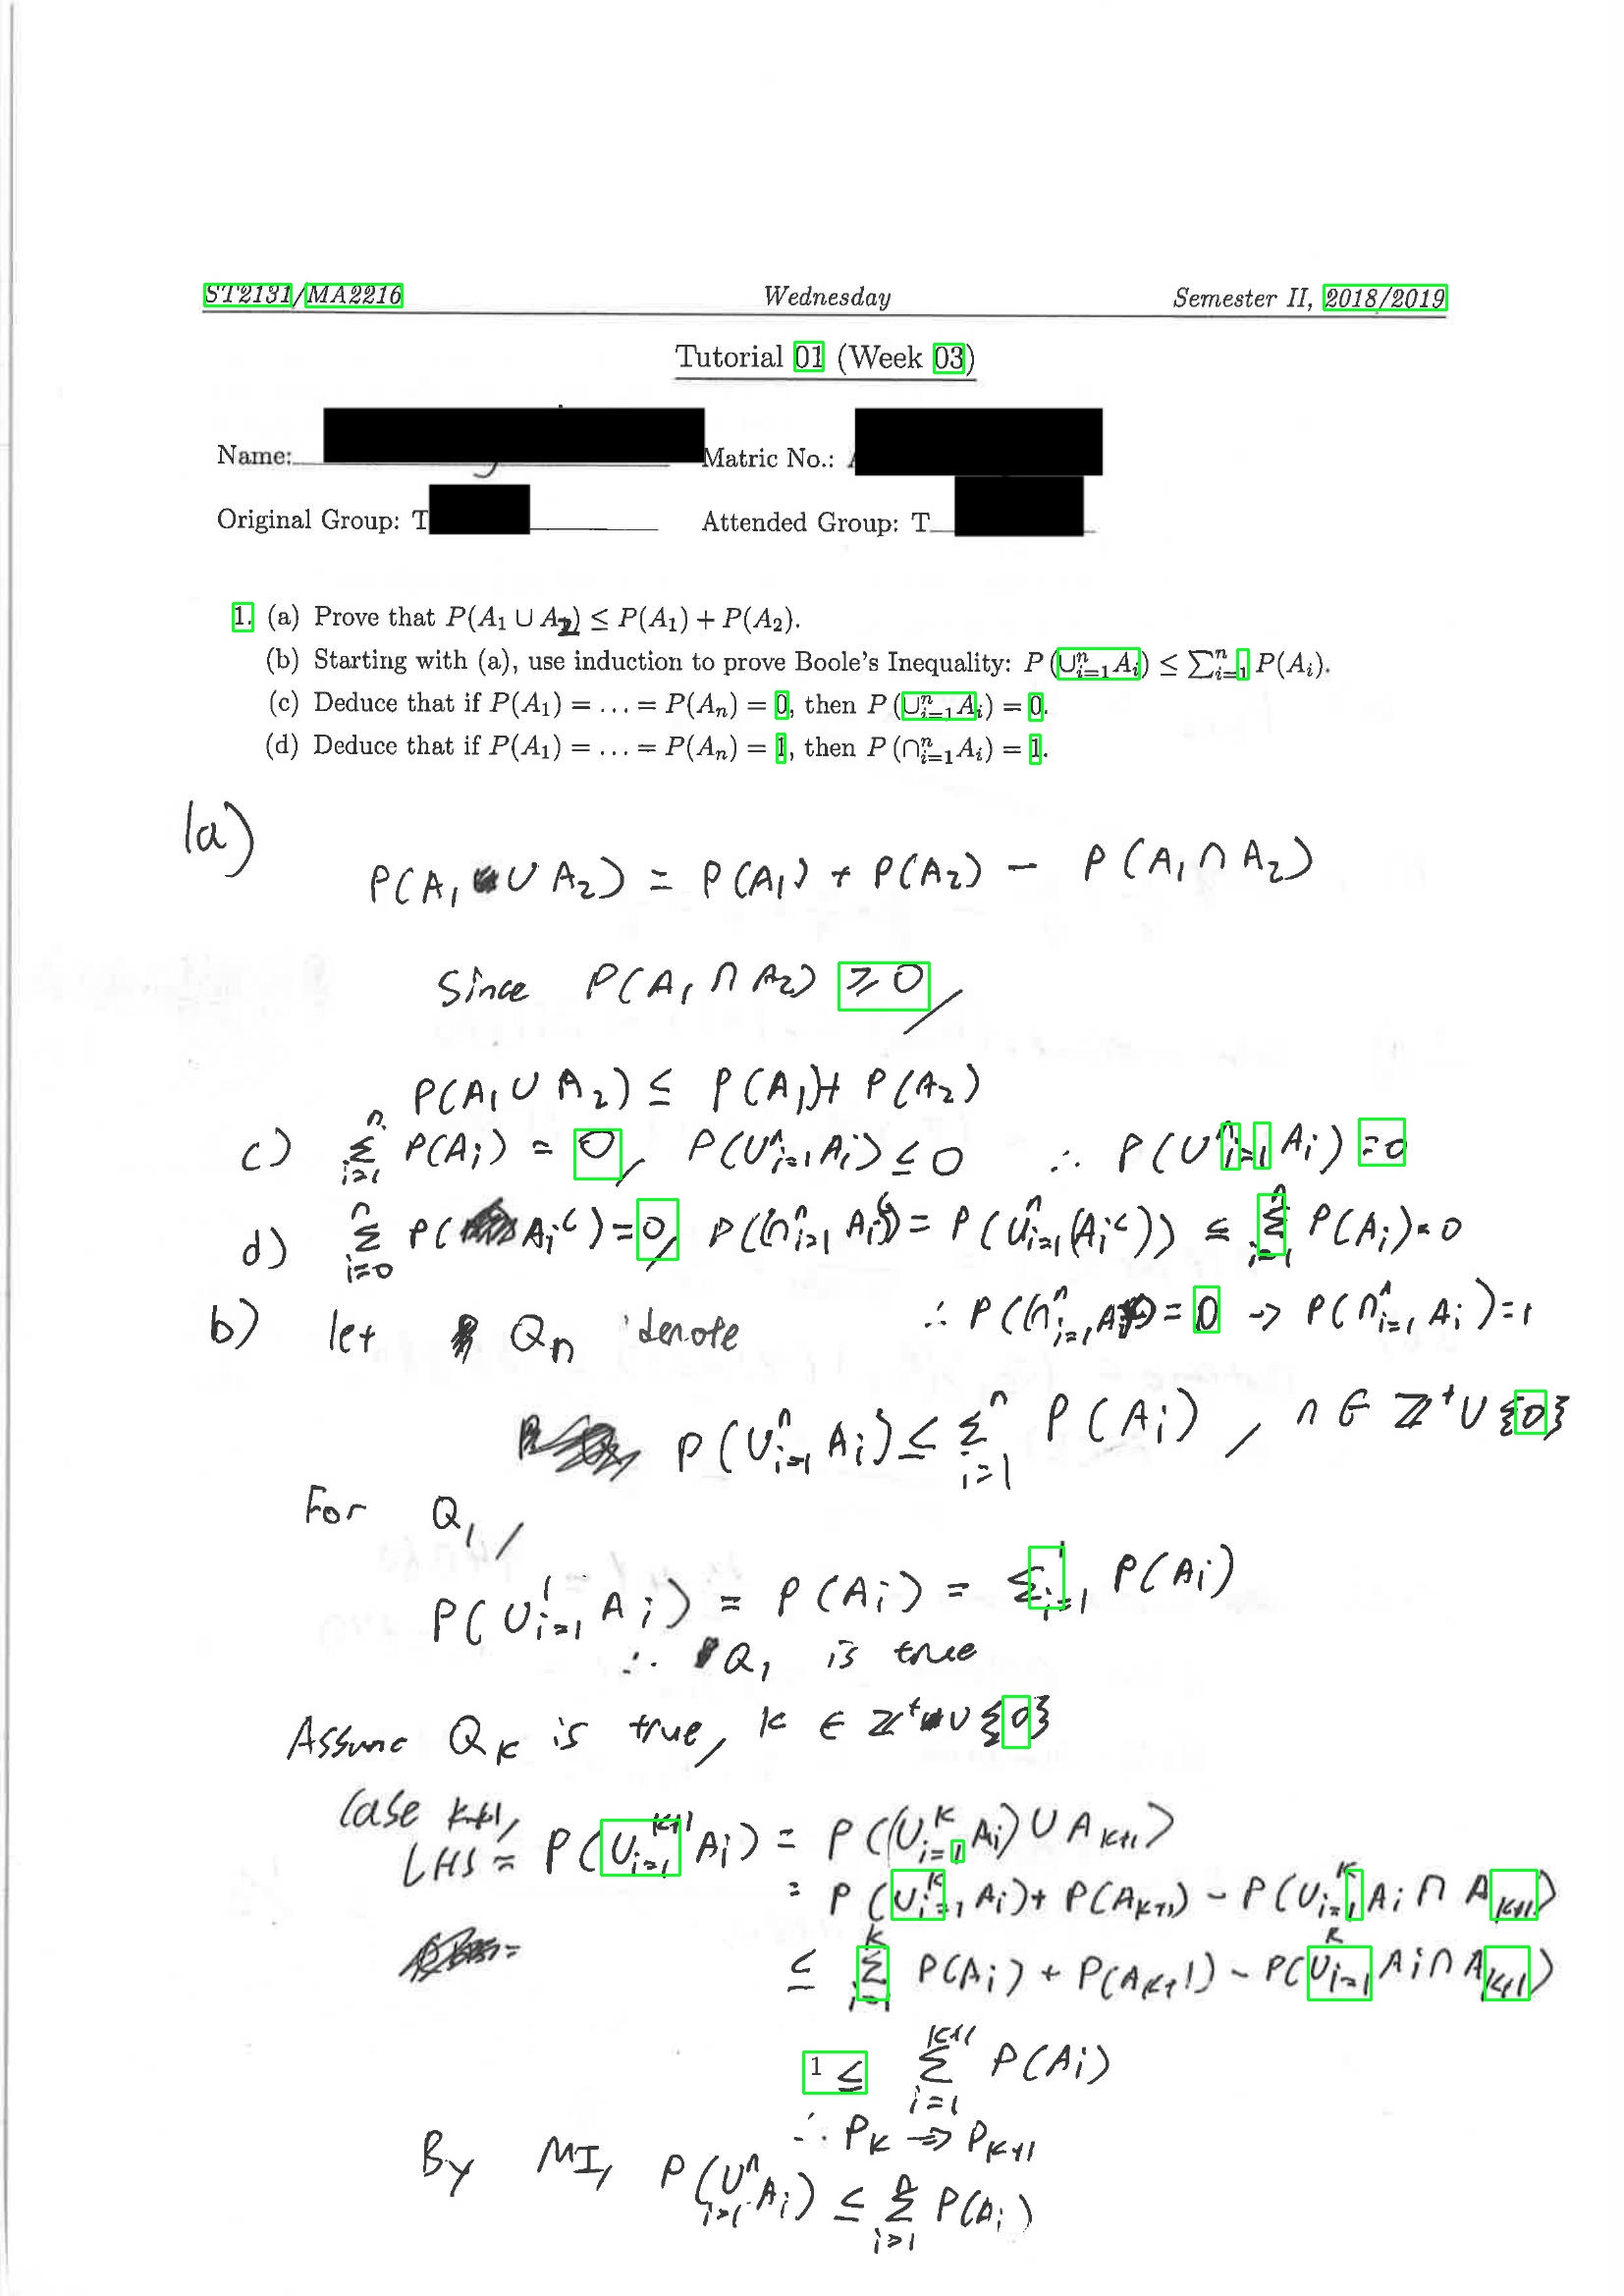 ST2131/MA2216 Wednesday Semester II, 2018/2019
Tutorial 01 (Week 03)
Name: Matric No.:
Original Group: T Attended Group: T
1. (a) Prove that P(A₁ ∪ A₂) ≤ P(A₁) + P(A₂).
(b) Starting with (a), use induction to prove Boole's Inequality: P (∪ⁿᵢ₌₁Aᵢ) ≤ ∑ⁿᵢ₌₁ P(Aᵢ).
(c) Deduce that if P(A₁) = … = P(Aₙ) = 0, then P (∪ⁿᵢ₌₁Aᵢ) = 0.
(d) Deduce that if P(A₁) = … = P(Aₙ) = 1, then P (∩ⁿᵢ₌₁Aᵢ) = 1.
1a)
P(A₁ ∪ A₂) = P(A₁) + P(A₂) − P(A₁ ∩ A₂)
Since P(A₁ ∩ A₂) ≥ 0,
P(A₁ ∪ A₂) ≤ P(A₁) + P(A₂)
c) ∑ⁿᵢ₌₁ P(Aᵢ) = 0, P(∪ⁿᵢ₌₁Aᵢ) ≤ 0 ∴ P(∪ⁿᵢ₌₁Aᵢ) = 0
d) ∑ⁿᵢ₌₀ P(Aᵢᶜ) = 0, P((∩ⁿᵢ₌₁ Aᵢ)ᶜ) = P(∪ⁿᵢ₌₁(Aᵢᶜ)) ≤ ∑ⁿᵢ₌₁ P(Aᵢ) = 0
∴ P((∩ⁿᵢ₌₁Aᵢ)ᶜ) = 0 → P(∩ⁿᵢ₌₁ Aᵢ) = 1
b) let Qₙ denote
P(∪ⁿᵢ₌₁ Aᵢ) ≤ ∑ⁿᵢ₌₁ P(Aᵢ), n ∈ ℤ⁺ ∪ {0}
For Q₁,
P(∪¹ᵢ₌₁ Aᵢ) = P(Aᵢ) = ∑¹ᵢ₌₁ P(Aᵢ)
∴ Q₁ is true
Assume Qₖ is true, k ∈ ℤ⁺ ∪ {0}
Case k+1,
LHS = P(∪ᵏ⁺¹ᵢ₌₁ Aᵢ) = P((∪ᵏᵢ₌₁ Aᵢ) ∪ Aₖ₊₁)
= P(∪ᵏᵢ₌₁ Aᵢ) + P(Aₖ₊₁) − P(∪ᵏᵢ₌₁ Aᵢ ∩ Aₖ₊₁)
≤ ∑ᵏᵢ₌₁ P(Aᵢ) + P(Aₖ₊₁) − P(∪ᵏᵢ₌₁ Aᵢ ∩ Aₖ₊₁)
1 ≤ ∑ᵏ⁺¹ᵢ₌₁ P(Aᵢ)
∴ Pₖ → Pₖ₊₁
By MI, P(∪ⁿᵢ₌₁ Aᵢ) ≤ ∑ⁿᵢ₌₁ P(Aᵢ)